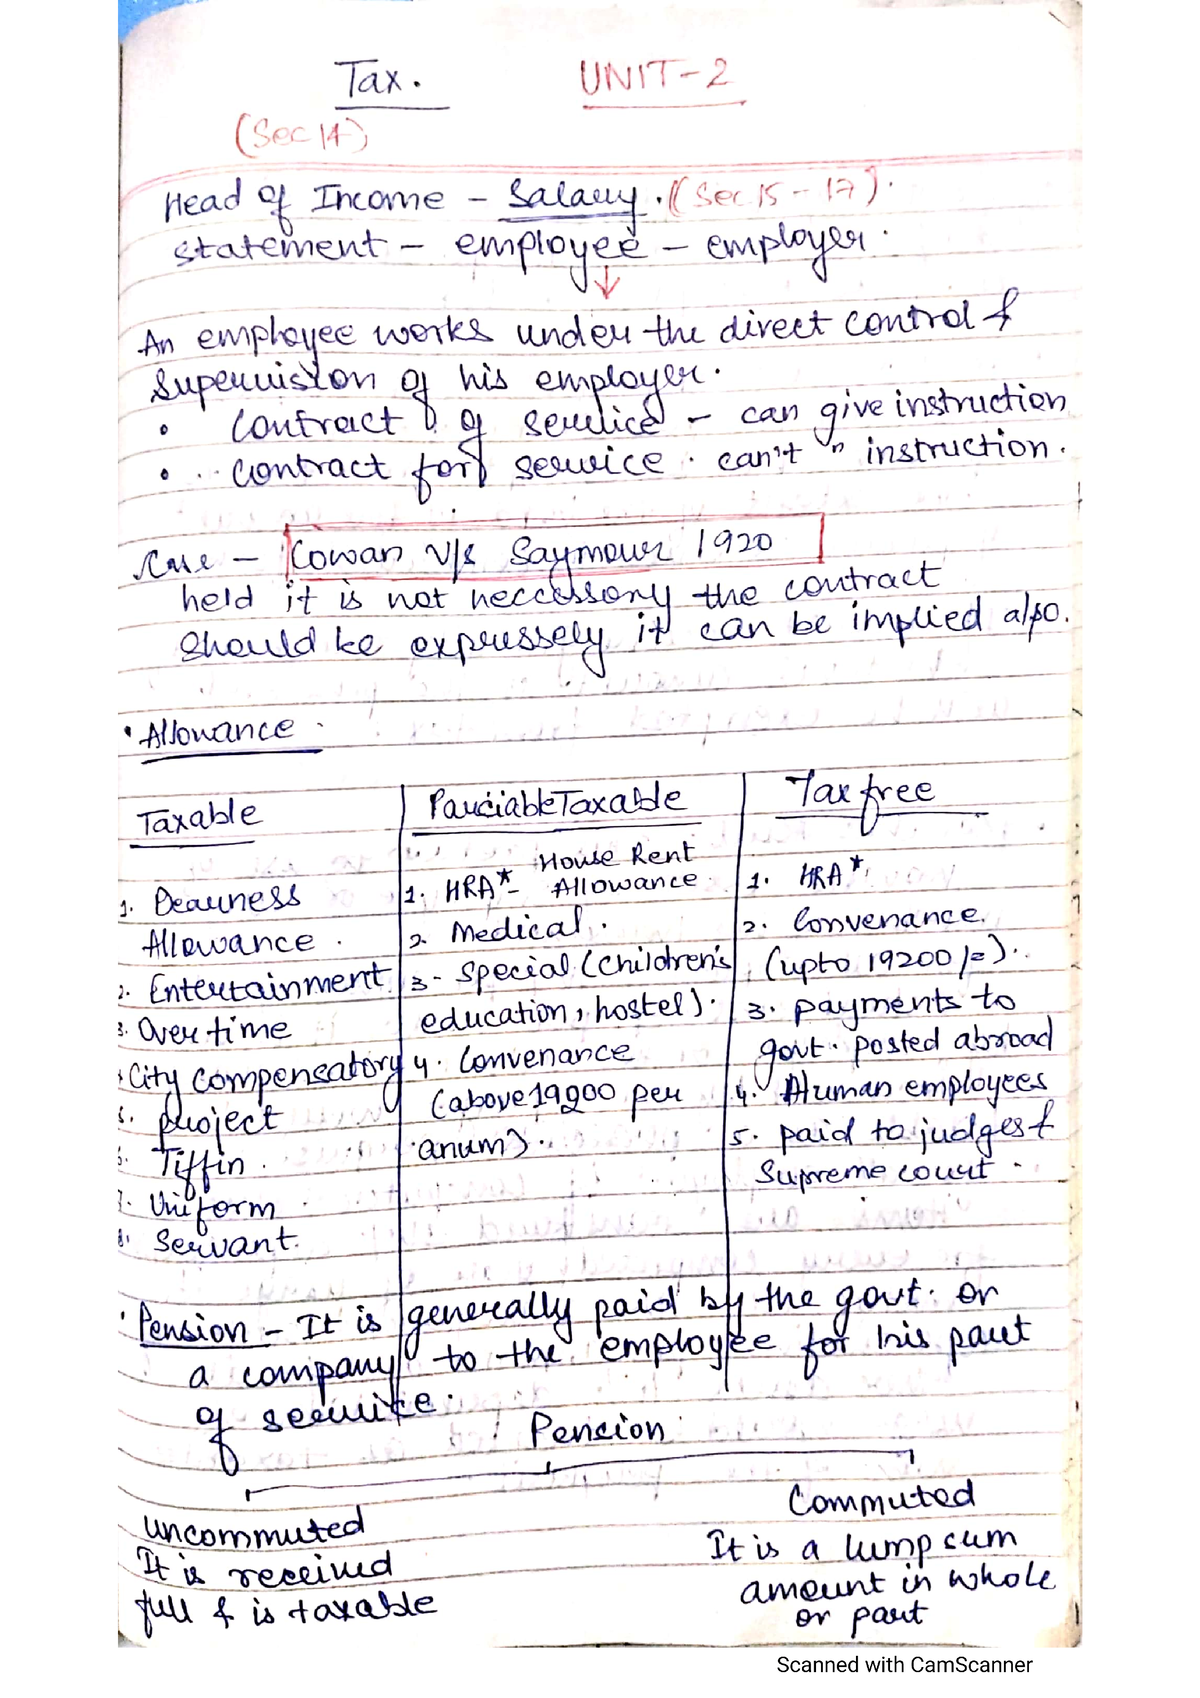 Tax. UNIT-2
(Sec 14)
Head of Income - Salary. (Sec 15 - 17).
statement - employee - employer.
An employee works under the direct control &
Supervision of his employer.
• Contract of service - can give instruction
• Contract for service. can't " instruction.
Case - Cowan v/s Saymour 1920
held it is not neccessory the contract
should be expressely it can be implied also.
• Allowance
Taxable
1. Dearness
Allowance.
2. Entertainment
3. Over time
City compensatory
5. project
6. Tiffin.
7. Uniform
8. Servant.
Parciable Taxable
House Rent
1. HRA* - Allowance
2. Medical.
3- Special (children's
education, hostel).
4. Convenance
(above 19200 per
anum).
Tax free
1. HRA*
2. Convenance.
(upto 19200/=).
3. payments to
govt. posted abroad
4. Human employees
5. paid to judges &
Supreme court.
• Pension - It is generally paid by the govt. or
a company to the employee for his part
of service.
Pension
Uncommuted
It is received
full & is taxable
Commuted
It is a lump sum
amount in whole
or part
Scanned with CamScanner